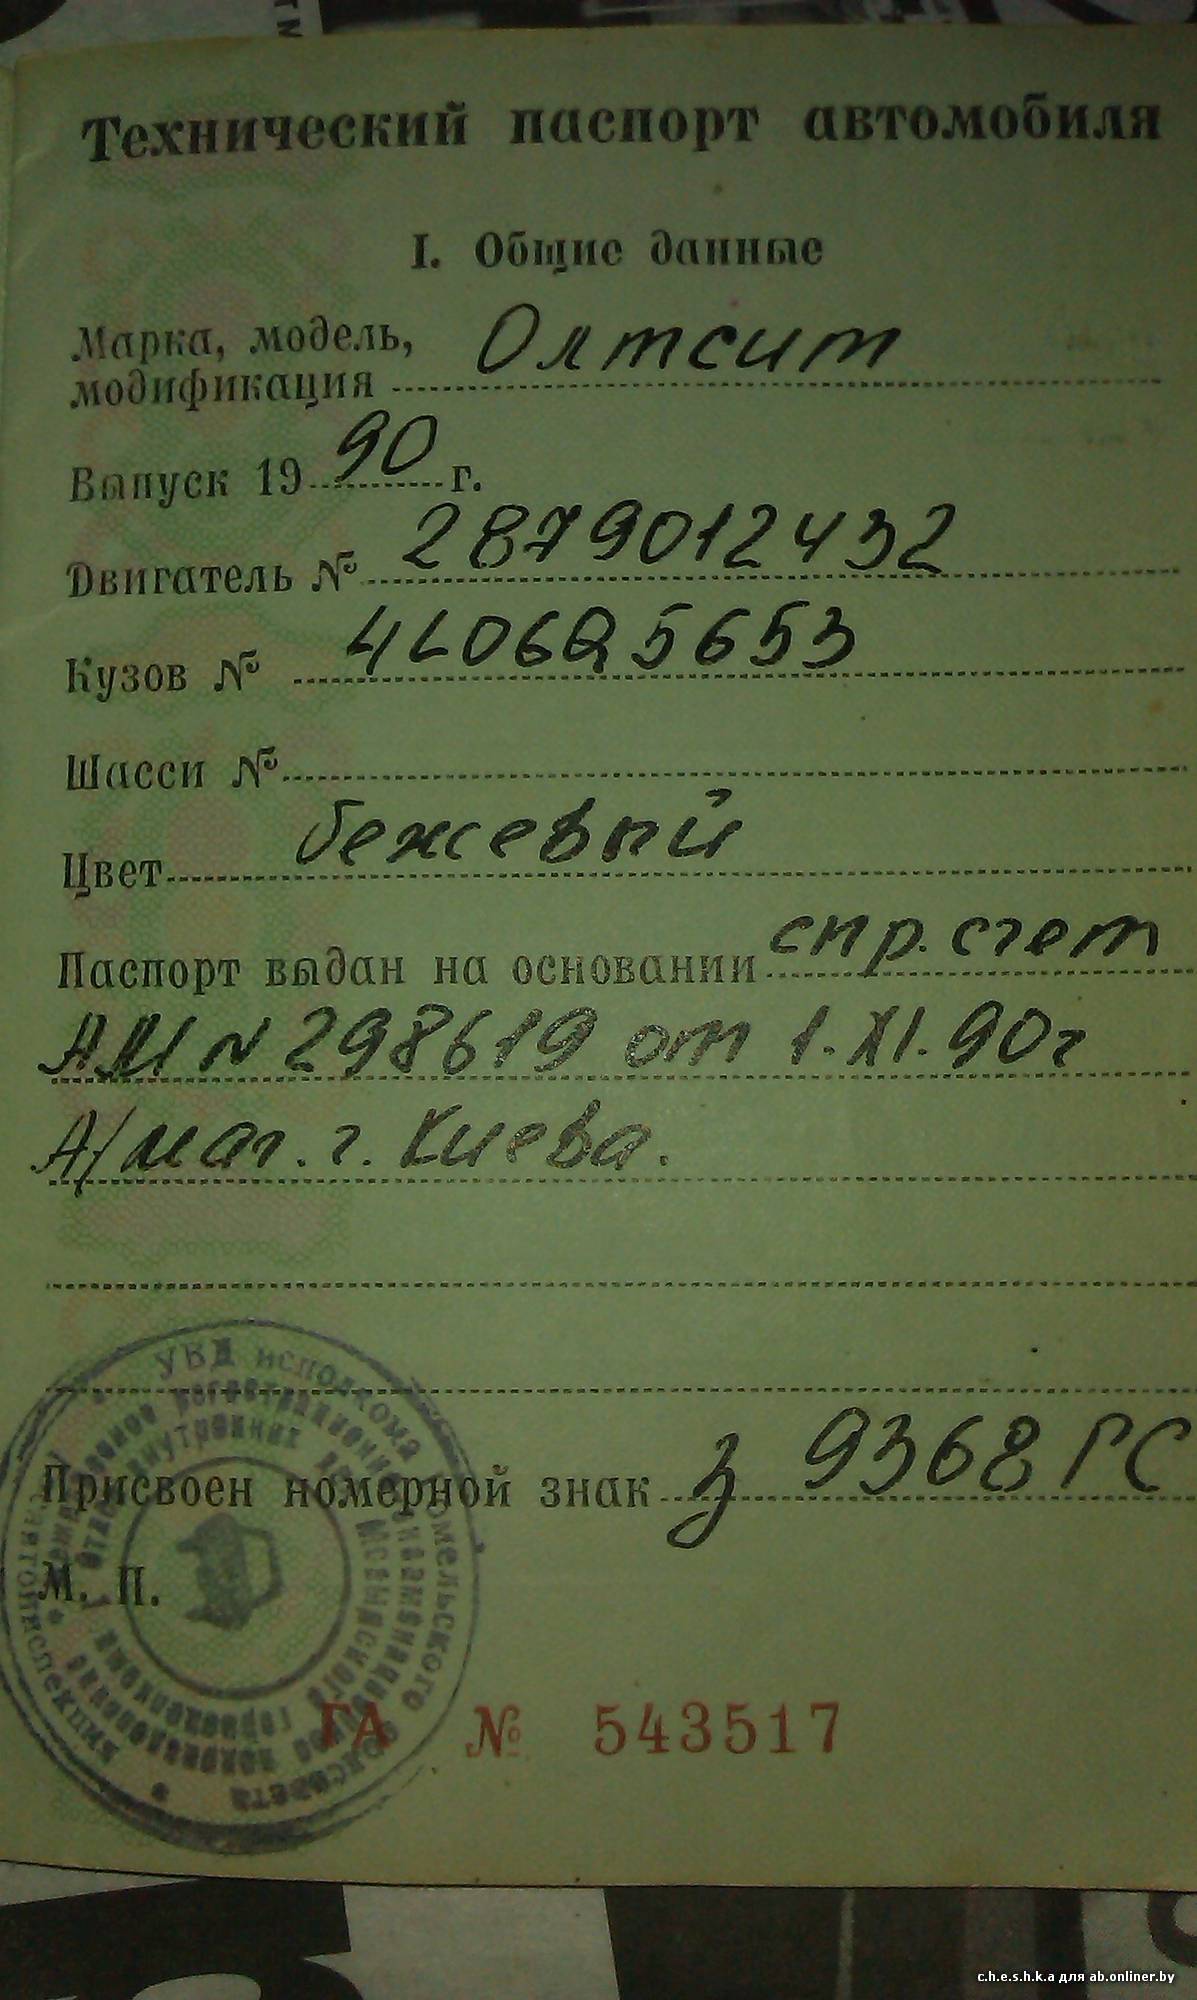 Технический паспорт автомобиля
I. Общие данные
Марка, модель, Олтсит
модификация
Выпуск 1990 г.
Двигатель № 2879012432
Кузов № 4L06Q5653
Шасси №
Цвет бежевый
Паспорт выдан на основании спр. счет
№ 298619 от 1.XI.90г
А/маг. г. Киева.
УВД исполкома Гомельского облсовета
Присвоен номерной знак з 9368 ГС
М. П.
ГА № 543517
c.h.e.s.h.k.a для ab.onliner.by